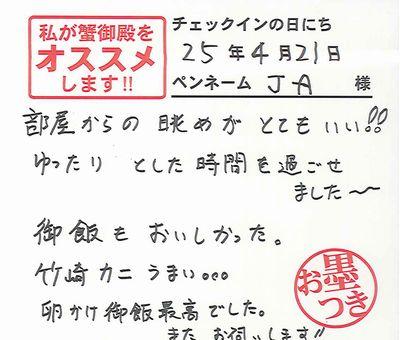 私が蟹御殿を
オススメ
します!!
チェックインの日にち
25年4月21日
ペンネーム JA 様
部屋からの眺めがとてもいい!!
ゆったりとした時間を過ごせ
ました〜
御飯もおいしかった。
竹崎カニうまい。。。
卵かけ御飯最高でした。
また お伺いします!!
お墨つき